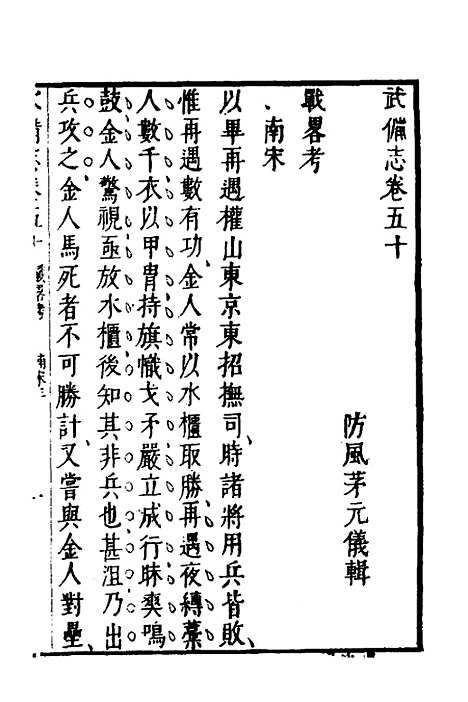 武備志卷五十
防風茅元儀輯
戰畧考
南宋
以畢再遇權山東京東招撫司、時諸將用兵皆敗、
惟再遇數有功、金人常以水櫃取勝、再遇夜縛藁
人數千衣以甲冑持旗幟戈矛嚴立成行昧爽鳴
鼓金人驚視亟放水櫃後知其非兵也甚沮乃出
兵攻之金人馬死者不可勝計、又嘗與金人對壘、